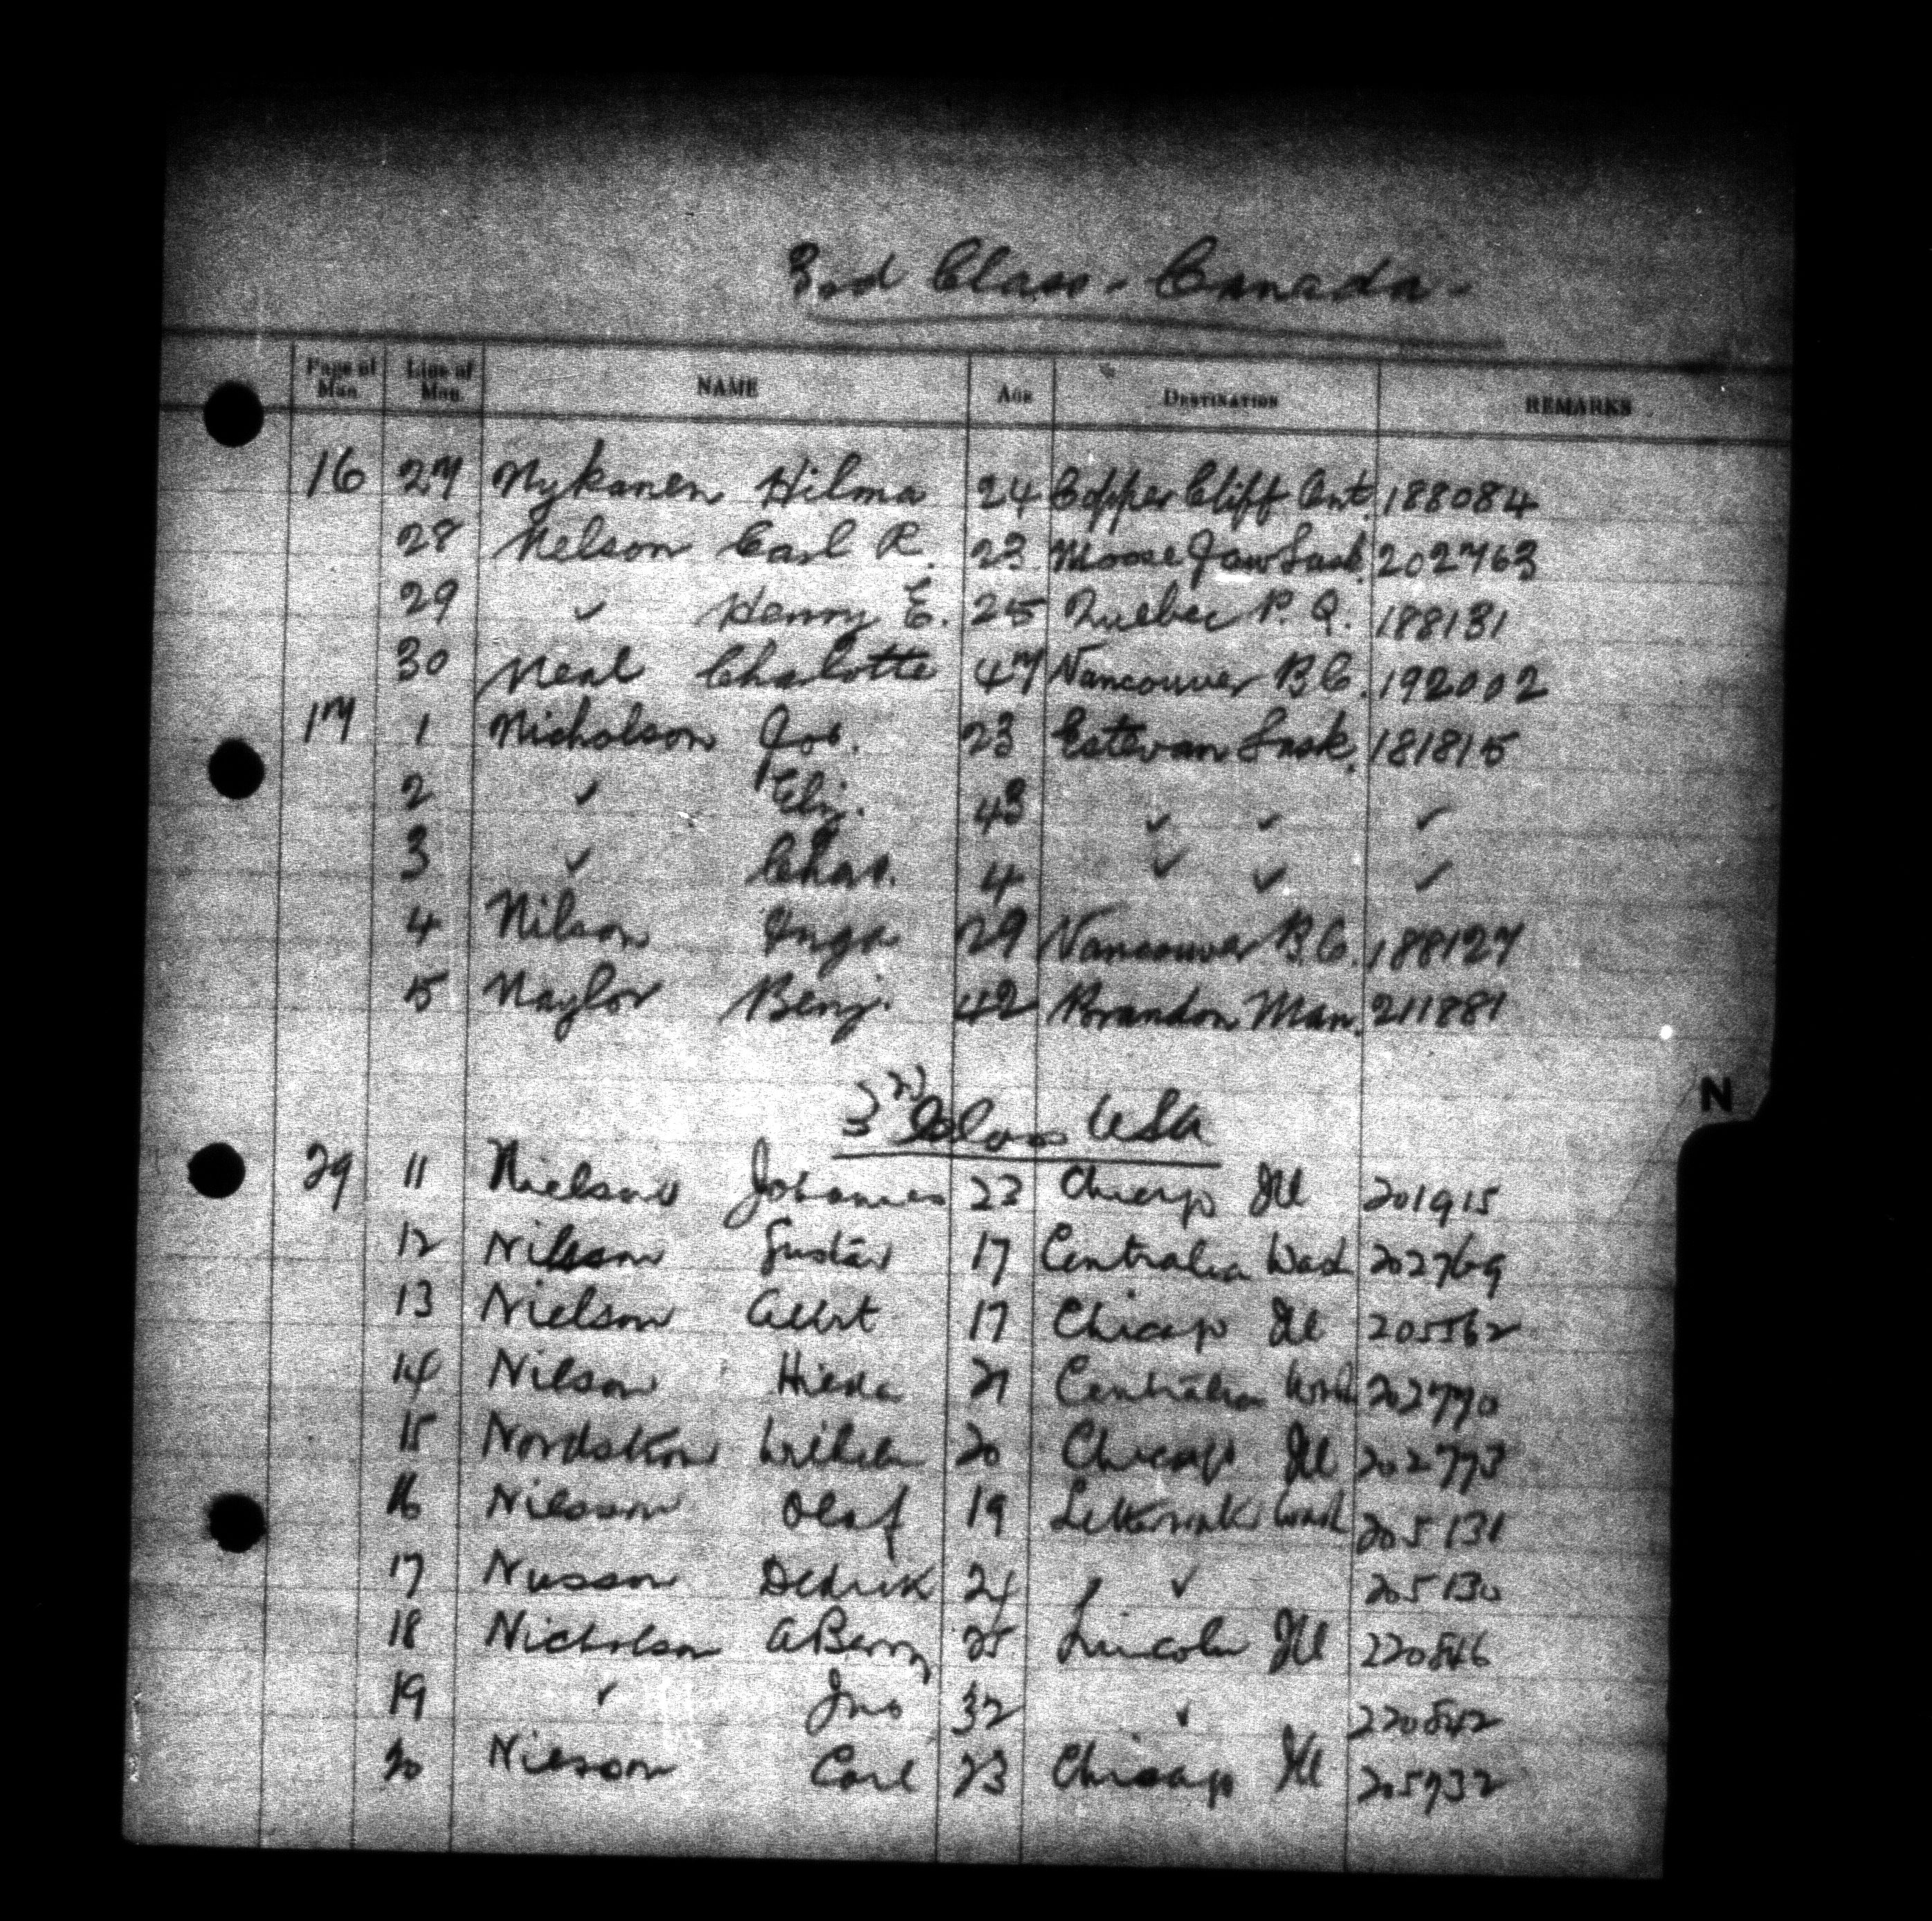 3rd Class - Canada -
Page of Man. Line of Man. NAME AGE DESTINATION REMARKS
16 27 Nykanen Hilma 24 Copper Cliff Ont. 188084
28 Nelson Carl R. 23 Moose Jaw Sask. 202763
29 ✓ Henry E. 25 Quebec P. Q. 188131
30 Neal Chalotte 47 Vancouver B.C. 192002
17 1 Nicholson Jos. 23 Estevan Sask. 181815
2 ✓ Eliz. 43 ✓ ✓ ✓
3 ✓ Chas. 4 ✓ ✓ ✓
4 Nilson Inga 29 Vancouver B.C. 188127
5 Naylor Benj. 42 Brandon Man. 211881
N
3rd Class USA
29 11 Nielson Johannes 22 Chicago Ill 201915
12 Nilsson Gustav 17 Centralia Wash 202769
13 Nielson Albert 17 Chicago Ill 205562
14 Nilson 21 Centralia Wash 202770
15 Nordstrom 20 Chicago Ill 202773
16 Nilsson Olaf 19 Wash 205131
17 Dedrik 24 " ✓ 205130
18 Nicholson 25 Lincoln Ill 220846
19 ✓ Jno 32 ✓ 220842
20 Nilsson Carl 23 Chicago Ill 205732